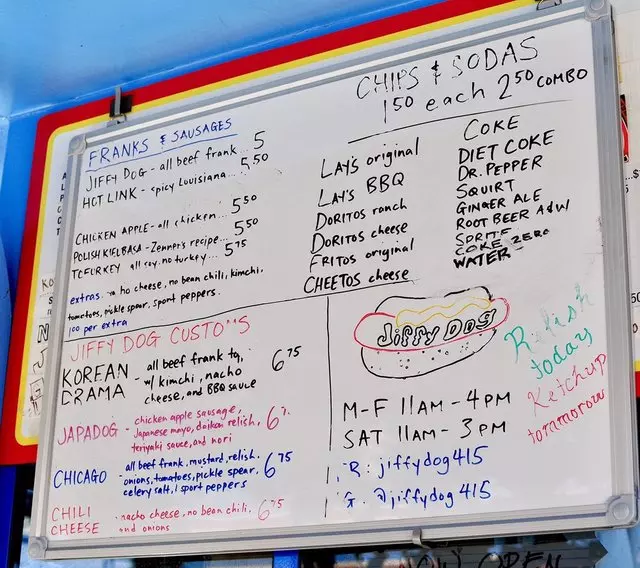 CHIPS & SODAS
1 50 each 2 50 COMBO
FRANKS & SAUSAGES
JIFFY DOG - all beef frank... 5
HOT LINK - spicy Louisiana... 5 50
CHICKEN APPLE - all chicken... 5 50
POLISH KIELBASA - Zenner's recipe... 5 50
TOFURKEY all soy, no turkey... 5 75
extras nacho cheese, no bean chili, kimchi,
tomatoes, pickle spear, sport peppers.
1 00 per extra
LAY'S original
LAY'S BBQ
DORITOS ranch
DORITOS cheese
FRITOS original
CHEETOS cheese
COKE
DIET COKE
DR. PEPPER
SQUIRT
GINGER ALE
ROOT BEER A&W
SPRITE
COKE ZERO
WATER
JIFFY DOG CUSTOMS
KOREAN DRAMA - all beef frank
w/ kimchi, nacho
cheese, and BBQ sauce 6 75
JAPADOG - chicken apple sausage,
Japanese mayo, daikon relish,
teriyaki sauce, and nori 6
CHICAGO all beef frank, mustard, relish,
onions, tomatoes, pickle spear,
celery salt, sport peppers 6 75
CHILI CHEESE nacho cheese, no bean chili,
and onions 6 75
Jiffy Dog
M-F 11AM - 4PM
SAT 11AM - 3PM
: jiffydog415
: @jiffydog415
Relish
today
Ketchup
tommorow
OPEN